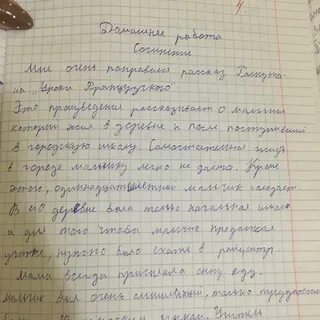 4
Домашнее работа
Сочинение
Мне очень понравился рассказ Распути-
на „Уроки Французского"
Это произведение рассказывает о мальчике
который жил в деревне и после поступивший
в городскую школу. Самостоятельная жизнь
в городе мальчику легко не даётся. Кроме
этого, одиннадцатилетний мальчик голодает.
В его деревне была только начальная школа
а для того чтобы мальчик продолжал
учиться, нужно было ехать в райцентр
Мама всегда присылала сыну еду.
мальчик был очень смышлёный, только трудности
были с языком. Учитель